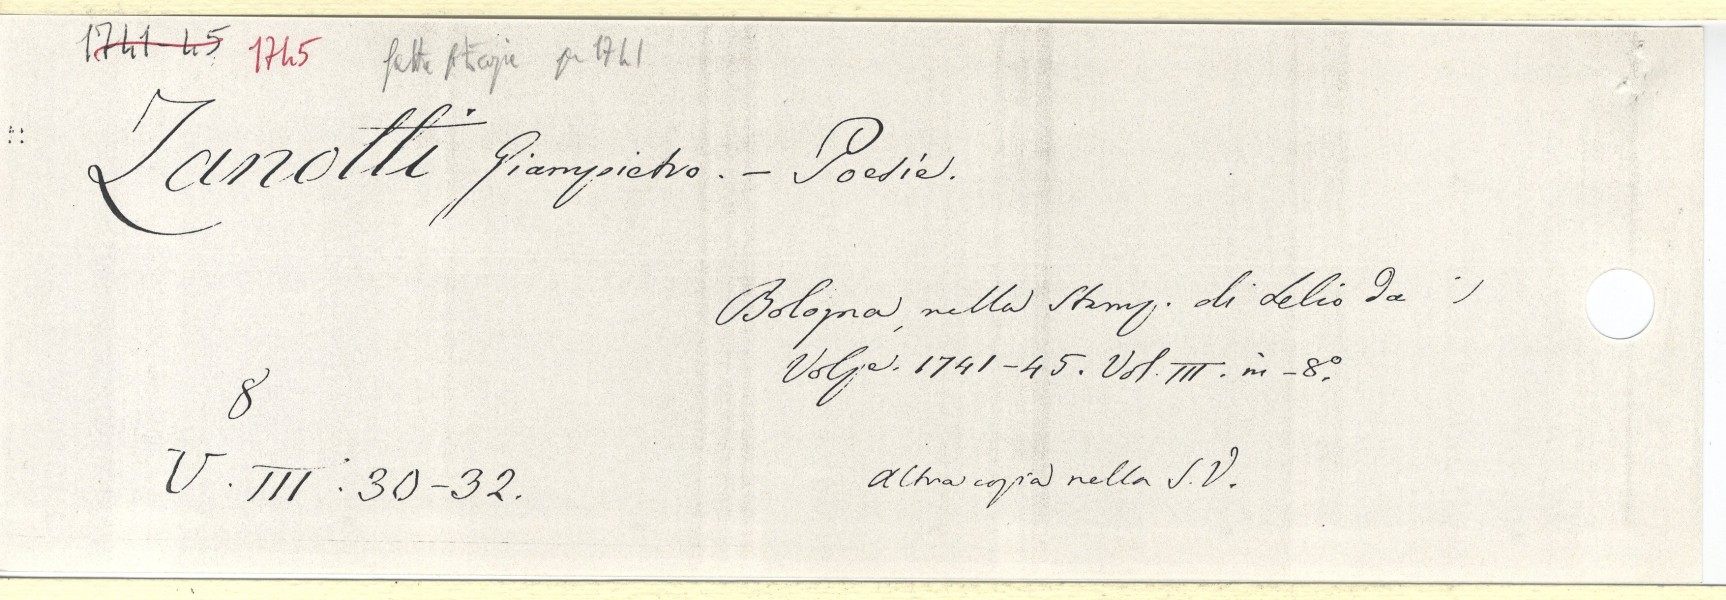 1741-45 1745 fatta fotocopia per 1741
Zanotti Giampietro. - Poesie.
Bologna, nella Stamp. di Lelio Da
8
Volpe. 1741-45. Vol. III. in-8º.
V. III. 30-32.
altra copia nella S.V.